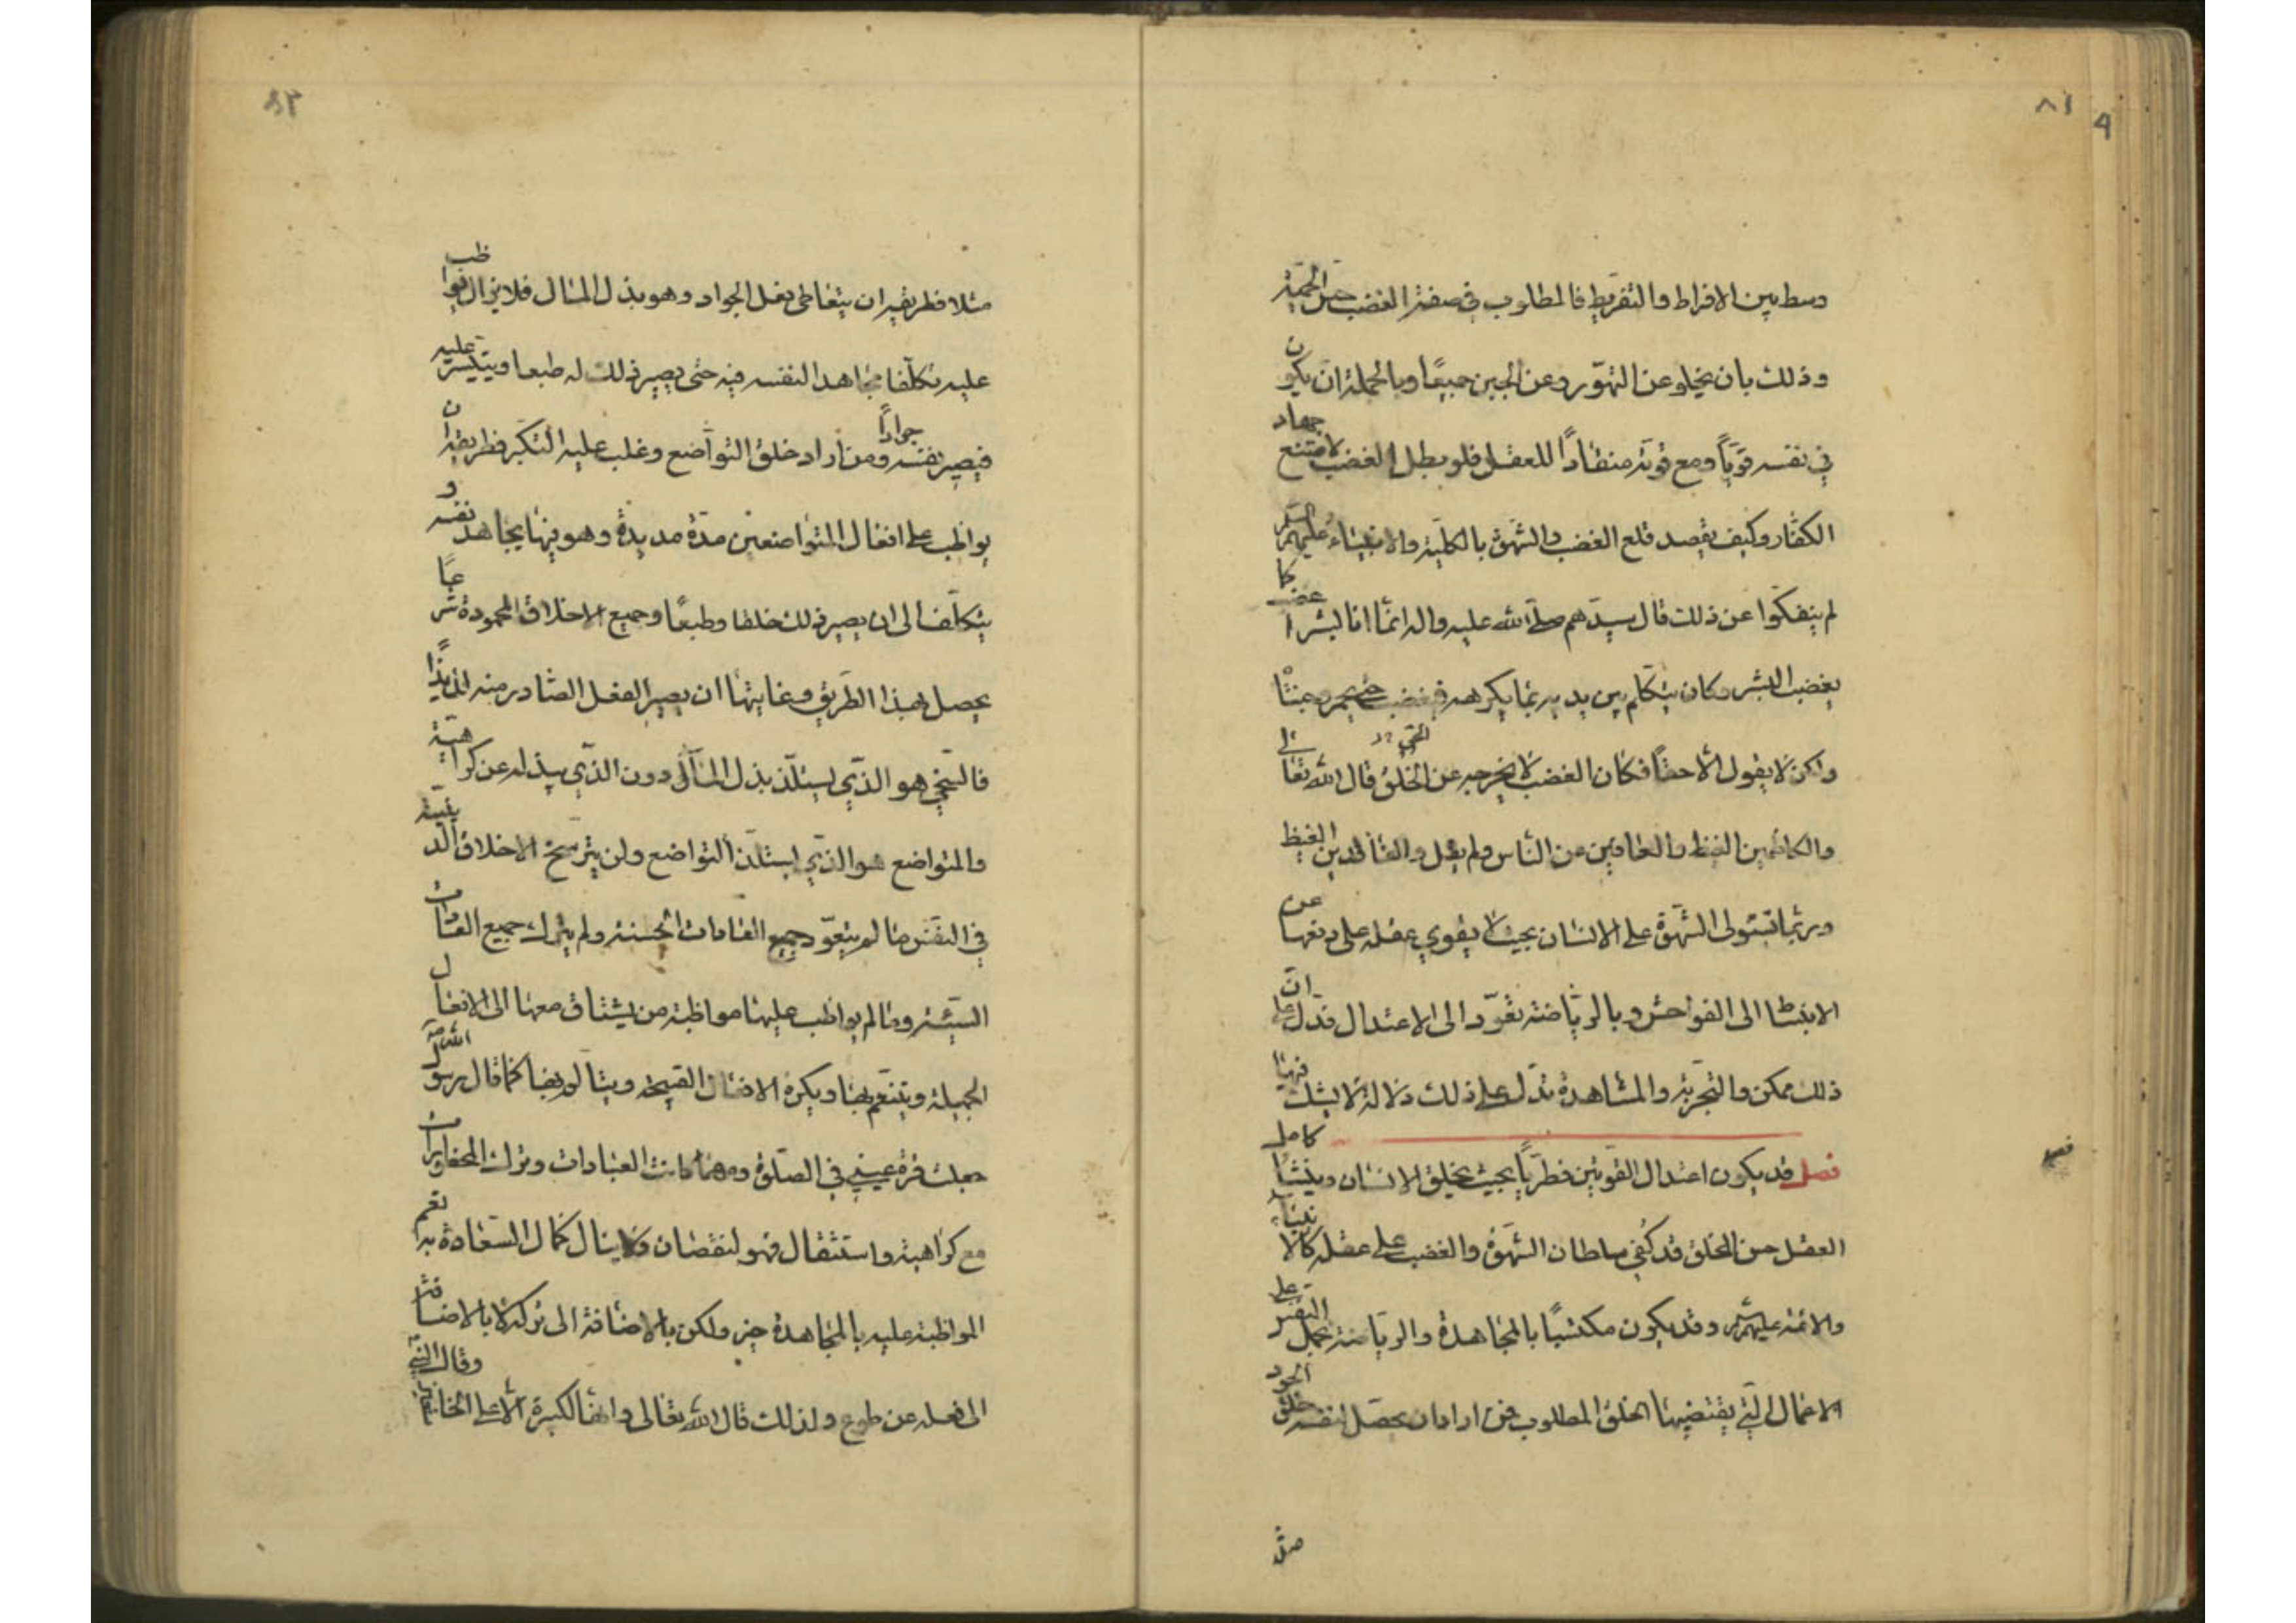 ٨١
وسط بين الافراط والتفريط فالمطلوب في صفة الغضب حسن الحمية
وذلك بان يخلو عن التهوّر وعن الجبن جميعًا وبالجملة ان يكون
في نفسه قويًّا ومع قوته منقادًا للعقل فلو بطل الغضب لامتنع جهاد
الكفار وكيف يقصد قلع الغضب والشهوة بالكلية والانبياء عليهم السلم
لم ينفكوا عن ذلك قال سيدهم صلى الله عليه واله انما انا بشر اغضب كما
يغضب البشر وكان يتكلم بين يديه بما يكرهه فيغضب حتى يحمر وجنتاه
ولكن لا يقول الا حقًا فكان الغضب لا يخرجه عن الخلق قال الله تعالى
والكاظمين الغيظ والعافين عن الناس ولم يقل والفاقدين الغيظ
وربما تستولى الشهوة على الانسان بحيث لا يقوى عقله على دفعها عن
الانبساط الى الفواحش وبالرياضة تعود الى الاعتدال فدل على ان
ذلك ممكن والتجربة والمشاهدة تدل على ذلك دلالة لا يشك فيها
فصل قد يكون اعتدال القوتين فطريًّا بحيث يخلق الانسان وينشأ كامل
العقل حسن الخلق قد كفى سلطان الشهوة والغضب على عقله كالانبياء
والائمة عليهم السلم وقد يكون مكتسبًا بالمجاهدة والرياضة بحمل النفس على
الاعمال التي يقتضيها الخلق المطلوب فمن اراد ان يحصل لنفسه خلق الجود
مثلا
مثلا فطريقه ان يتعاطى فعل الجواد وهو بذل المال فلا يزال يواظب
عليه تكلفا مجاهدا لنفسه فيه حتى يصير ذلك له طبعا ويتيسر عليه
فيصير نفسه جوادًا ومن اراد خلق التواضع وغلب عليه التكبر فطريقه ان
يواظب على افعال المتواضعين مدة مديدة وهو فيها يجاهد نفسه و
يتكلف الى ان يصير ذلك خلقا وطبعًا وجميع الاخلاق المحمودة شرعًا
يحصل بهذا الطريق وغايتها ان يصير الفعل الصادر منه لذيذًا
فالسخي هو الذي يستلذ بذل المال دون الذي يبذله عن كراهية
والمتواضع هو الذي يستلذ التواضع ولن يترسخ الاخلاق الدينية
في النفس ما لم يتعود جميع العادات الحسنة ولم يترك جميع العادات
السيئة وما لم يواظب عليها مواظبة من يشتاق معها الى الافعال
الجميلة ويتنعم بها ويكره الافعال القبيحة ويتالم بها كما قال رسول الله ص
جعلت قرة عيني في الصلوة ومهما كانت العبادات وترك المحظورات
مع كراهية واستثقال فهو لنقصان ولا ينال كمال السعادة به نعم
المواظبة عليه بالمجاهدة خير ولكن بالاضافة الى تركه لا بالاضافة
الى فعله عن طوع ولذلك قال الله تعالى وانها لكبيرة الا على الخاشعين وقال النبي